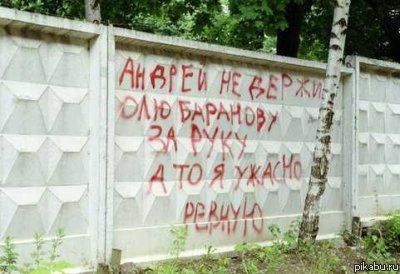 АНДРЕЙ НЕ ДЕРЖИ
ОЛЮ БАРАНОВУ
ЗА РУКУ
А ТО Я УЖАСНО
РЕВНУЮ
pikabu.ru